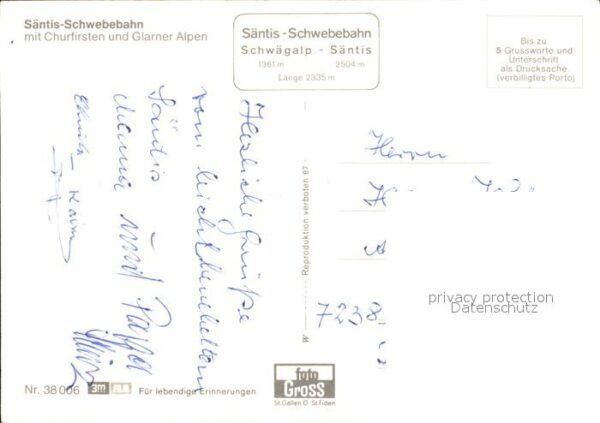 Säntis-Schwebebahn
mit Churfirsten und Glarner Alpen
Säntis-Schwebebahn
Schwägalp - Säntis
1361 m 2504 m
Länge 2335 m
Bis zu
5 Grussworte und
Unterschrift
als Drucksache
(verbilligtes Porto)
Herzliche Grüße
vom leicht benebelten
Säntis
Mama und Papa
Reproduktion verboten 87
Herrn
7238
privacy protection
Datenschutz
foto
Gross
St.Gallen O St.Fiden
Nr. 38 006 3m Für lebendige Erinnerungen